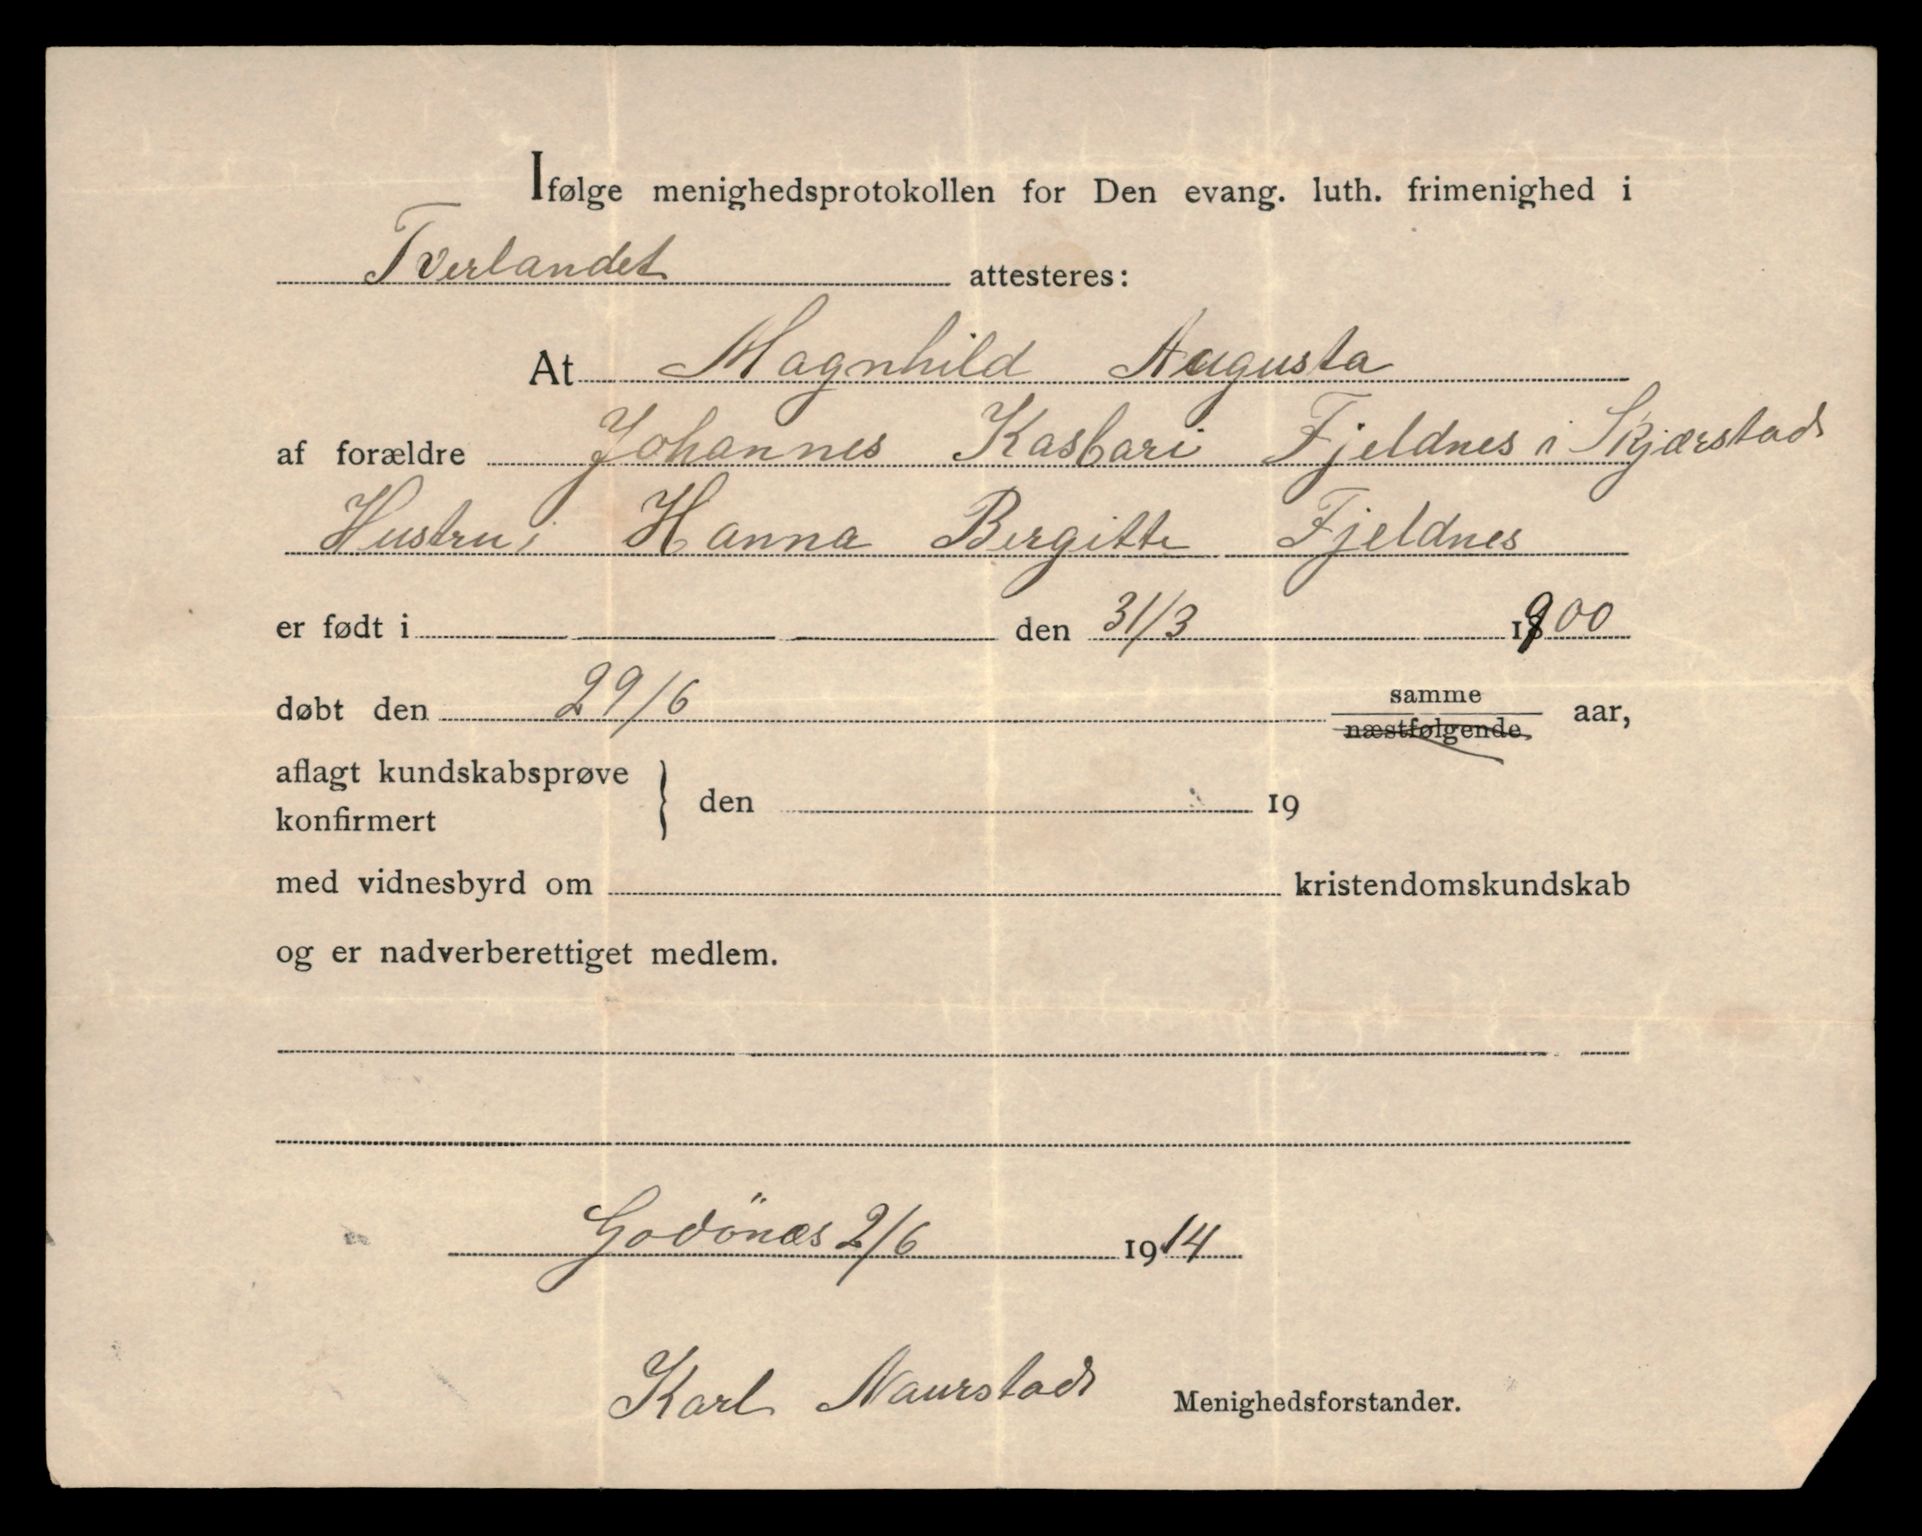 Ifølge menighedsprotokollen for Den evang. luth. frimenighed i
Tverlandet attesteres:
At Magnhild Augusta
af forældre Johannes Kasbari Fjeldnes i Skjærstad
Hustru; Hanna Bergitte Fjeldnes
er født i den 31/3 1900
døbt den 29/6 samme næstfølgende aar,
aflagt kundskabsprøve
konfirmert } den 19
med vidnesbyrd om kristendomskundskab
og er nadverberettiget medlem.
Godönæs 2/6 1914
Karl Naurstad Menighedsforstander.